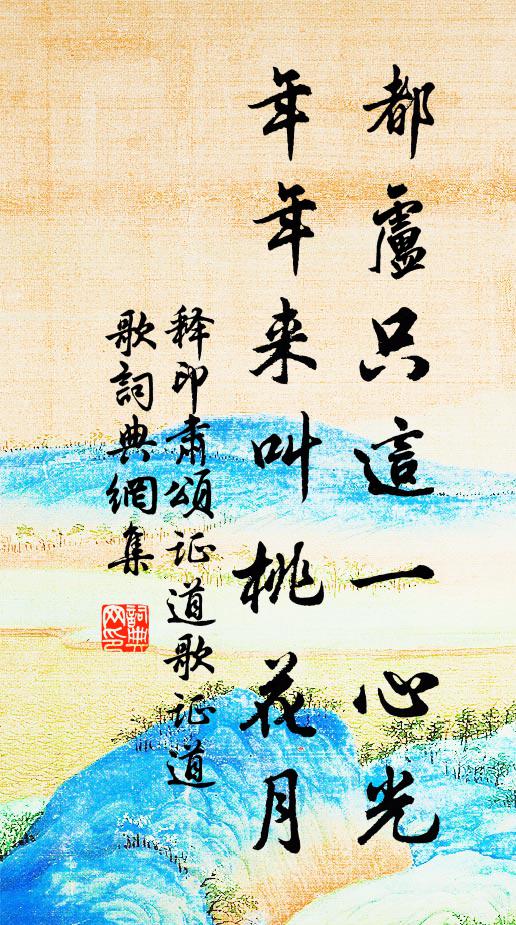 都盧只這一心光
年年来叫桃花月
释印肃頌证道歌证道
歌詞典網集
詞典